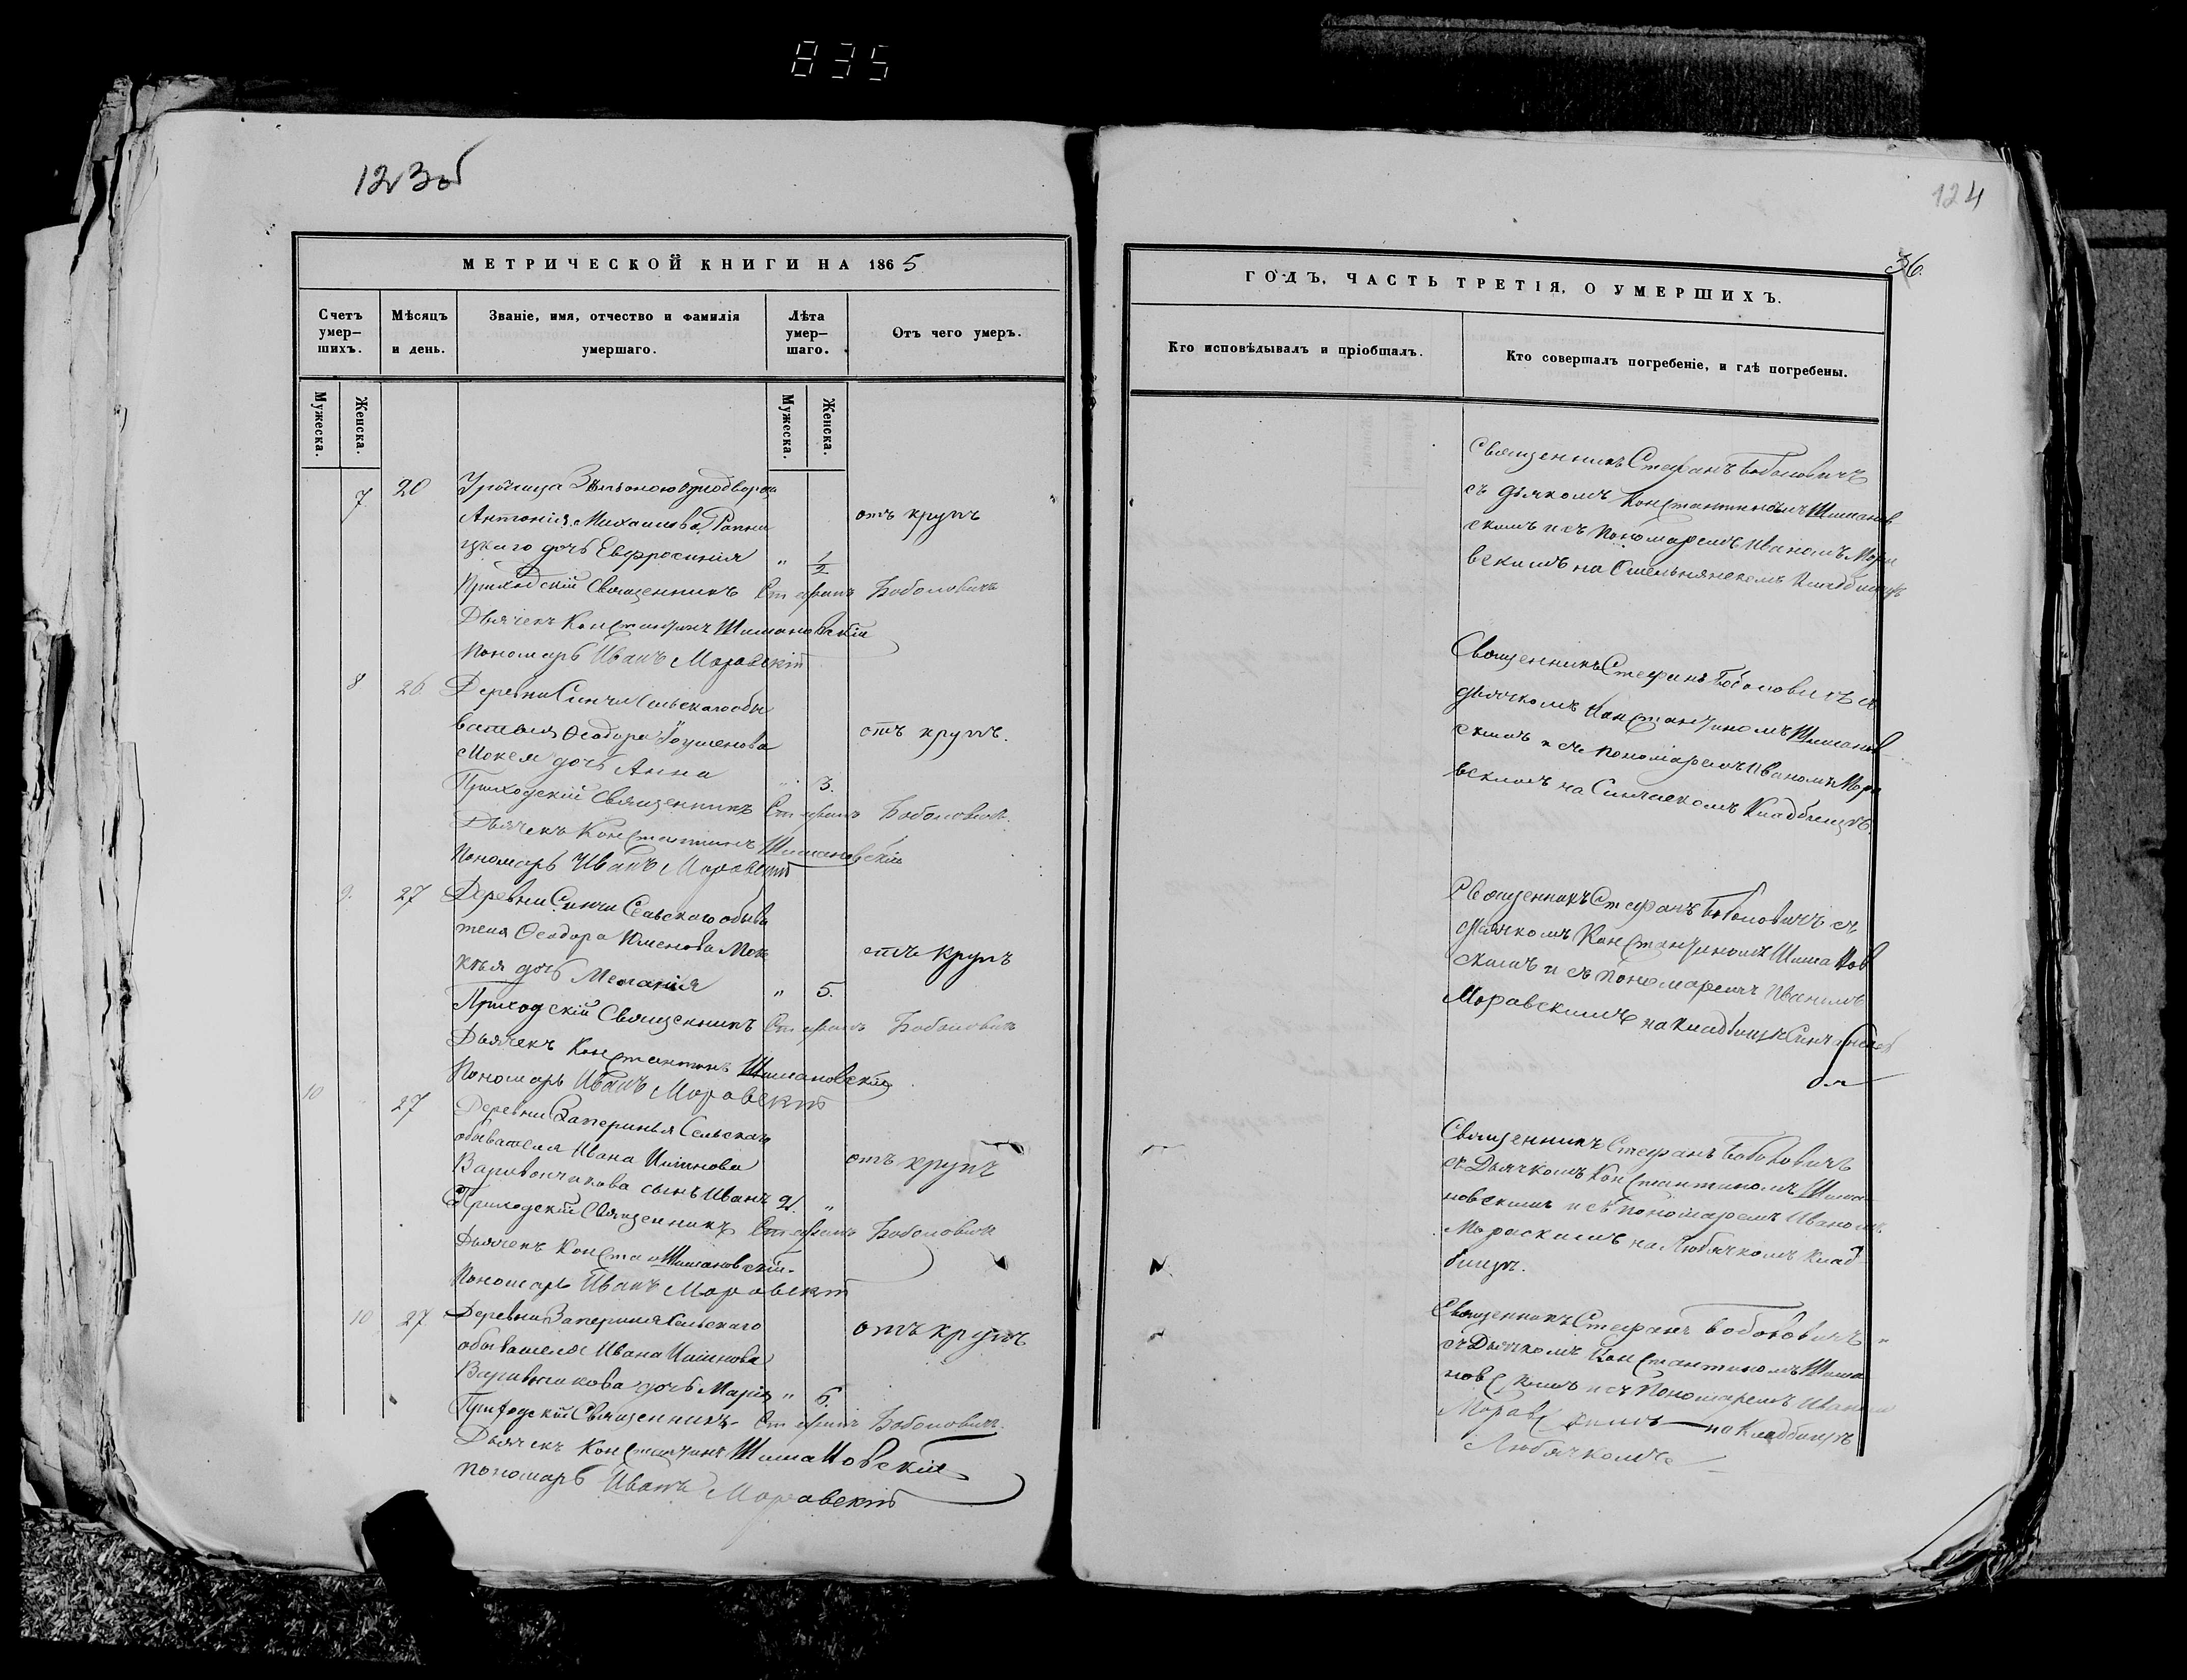 835
123об
124
36.
МЕТРИЧЕСКОЙ КНИГИ НА 1865
Счетъ умер–шихъ.
Мѣсяцъ и день.
Званіе, имя, отчество и фамилія умершаго.
Лѣта умер–шаго.
Отъ чего умеръ.
Мужеска.
Женска.
Мужеска.
Женска.
7 20 однодворца
Антонія Михаилова
дочь Евфросинія " 1/2 отъ крупъ
Приходскій Священникъ Стефанъ Боболовичъ
Дьячекъ Константинъ Шимановскій
Пономарь Иванъ Моравскій
8 26 Деревни Синчи Сельскаго обы
вателя Ѳеодора
дочь Анна " 3. отъ крупъ.
Приходскій Священникъ Стефанъ Боболовичъ
Дьячекъ Константинъ Шимановскій
Пономарь Иванъ Моравскій
9. 27 Деревни Синчи Сельскаго обыва
теля Ѳеодора
дочь Меланія " 5. отъ крупъ
Приходскій Священникъ Стефанъ Боболовичъ
Дьячекъ Константинъ Шимановскій
Пономарь Иванъ Моравскій
10 27 Деревни Сельскаго
обывателя Ивана
сынъ Иванъ 2. " отъ крупъ
Приходскій Священникъ Стефанъ Боболовичъ
Дьячекъ Шимановскій
Пономарь Иванъ Моравскій
10 27 Деревни Сельскаго
обывателя Ивана
дочь Марія " 6. отъ крупъ
Приходскій Священникъ Стефанъ Боболовичъ.
Дьячекъ Константинъ Шимановскій
Пономарь Иванъ Моравскій
ГОДЪ, ЧАСТЬ ТРЕТІЯ, О УМЕРШИХЪ.
Кто исповѣдывалъ и пріобщалъ.
Кто совершалъ погребеніе, и гдѣ погребены.
Священникъ Стефанъ Боболовичъ
съ дьячкомъ Константиномъ Шиманов
скимъ и съ Пономаремъ Иваномъ Мора
вскимъ на кладбищѣ
Священникъ Стефанъ Боболовичъ съ
дьячкомъ Константиномъ Шиманов
скимъ и съ пономаремъ Иваномъ Мора
вскимъ на Синчскомъ Кладбищѣ.
Священникъ Стефанъ Боболовичъ съ
дьячкомъ Константиномъ Шиманов
скимъ и съ Пономаремъ Иваномъ
Моравскимъ на кладбищѣ
Священникъ Стефанъ Боболовичъ
съ Дьячкомъ Константиномъ Шима
новскимъ и съ Пономаремъ Иваномъ
на Любячкомъ Клад
бищѣ.
Священникъ Стефанъ Боболовичъ
съ Дьячкомъ Константиномъ Шима
новскимъ и съ Пономаремъ Иваномъ
Моравскимъ на Кладбищѣ
Любячкомъ